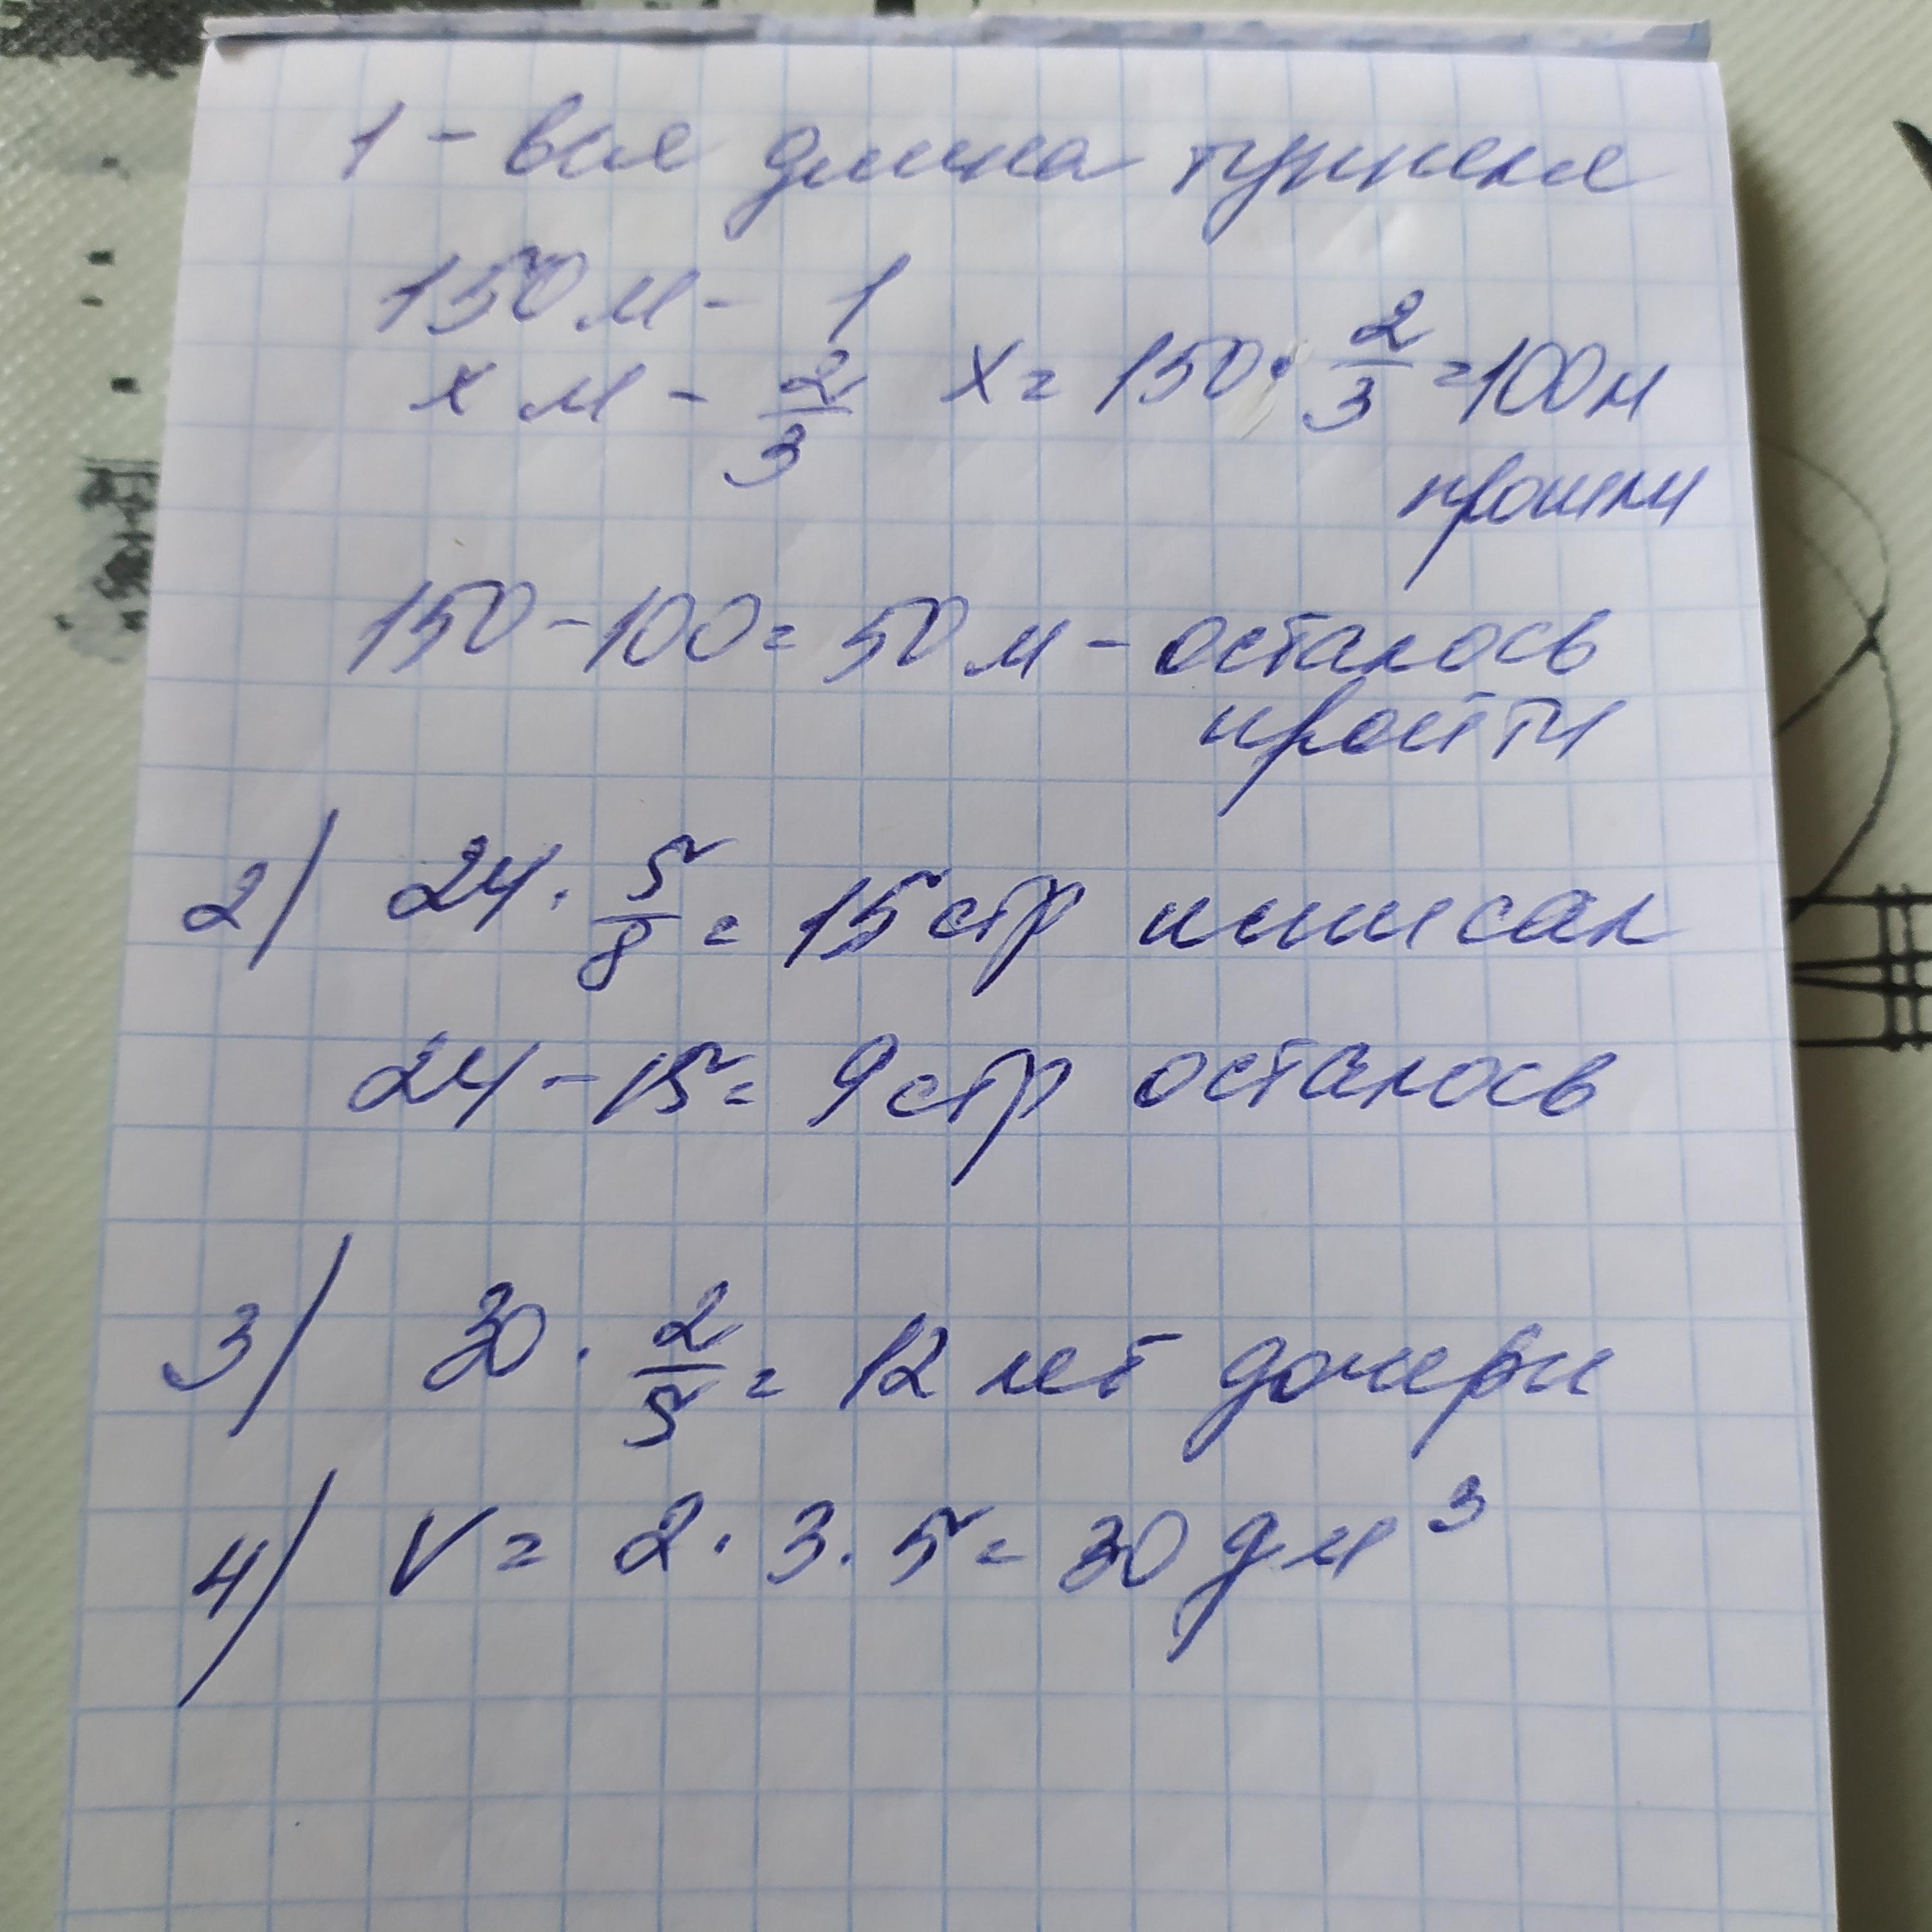 1 - вся длина туннеля
150 м - 1
x м - 2/3 x = 150 · 2/3 = 100 м
прошли
150 - 100 = 50 м - осталось
пройти
2/ 24 · 5/8 = 15 стр исписал
24 - 15 = 9 стр осталось
3/ 30 · 2/5 = 12 лет дочери
4/ V = 2 · 3 · 5 = 30 дм³